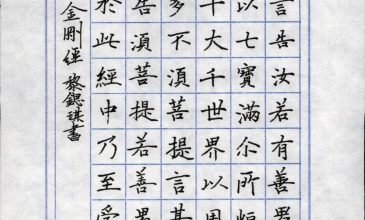 言告汝若有善男
以七寶滿尒所恒
千大千世界以用
多不須菩提言甚
告須菩提若善男
於此經中乃至受
金剛經 珠書